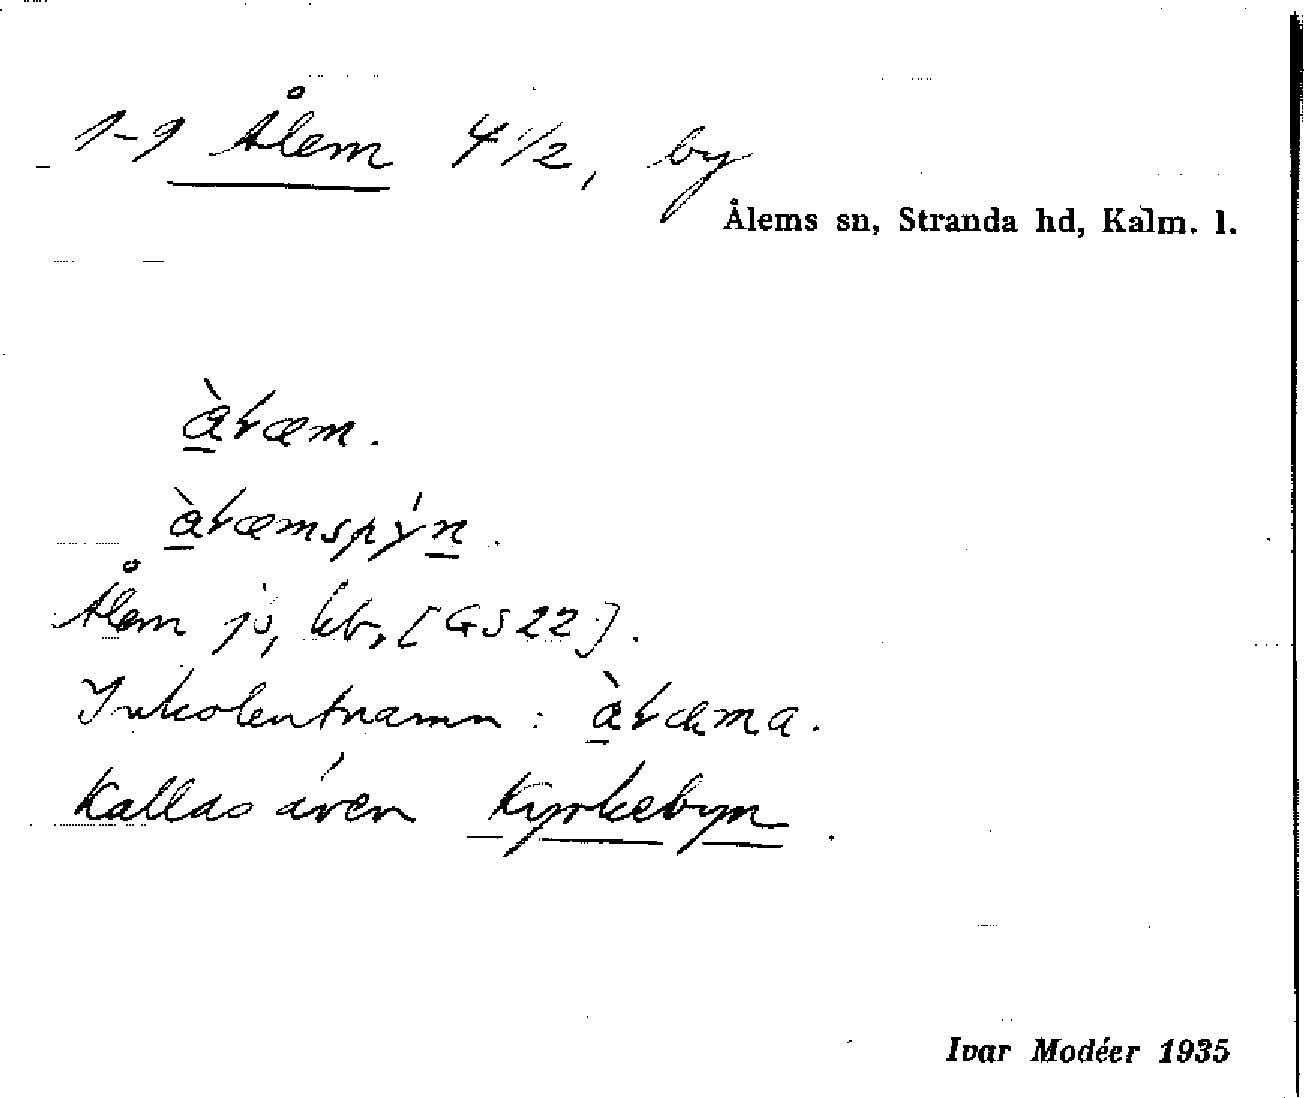 1-9 Ålem 4 1/2, by
Ålems sn, Stranda hd, Kalm. l.
àƚæm.
àƚæmspýn.
Ålem js, kb, [GS22].
Inkolentnamn: àƚæma.
Kallas även Kyrkebyn.
Ivar Modéer 1935